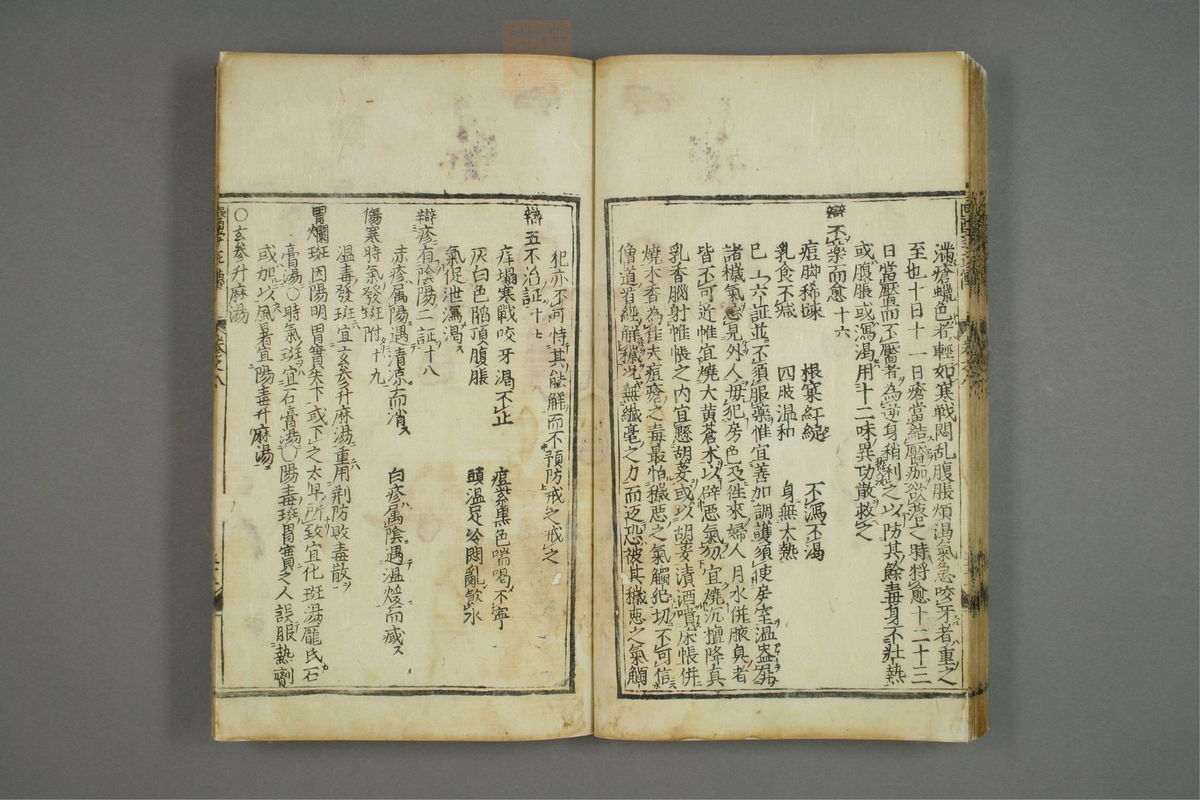 滿瘡蠟色者輕如寒戰悶乱腹脹煩渴氣急咬牙者重之
至也十日十一日瘡當結靨痂欲落之時將愈十二十三
日當靨而不靨者為逆身稍利之以防其餘毒身不壯熱
或腹脹或瀉渴用十二味異功散救之
辯不藥而愈十六
痘脚稀疎 根窠紅綻 不瀉不渴
乳食不减 四肢温和 身無大熱
已上六証並不須服藥惟宜善加調護須使房室温盎屏
諸穢氣忌見外人毋犯房色及徃來婦人月水併腋臭者
皆不可近惟宜燒大黄蒼朮以辟惡氣切勿宜燒沉檀降真
乳香腦射帷帳之内宜懸胡荽或以胡荽漬酒噴床帳併
燒木香為佳夫痘瘡之毒最怕穢惡之氣觸犯切不可信
僧道看經解穢况無纎毫之力而返恐被其穢惡之氣觸
犯亦不可恃其能解而不預防戒之戒之
辯五不治証十七
痒塌寒戰咬牙渴不止 痘紫黒色喘喝不寧
灰白色陷頂腹脹 頭温足冷悶亂飲水
氣促泄瀉渴
辯疹有陰陽二証十八
赤疹属陽遇清凉而消 白疹属陰遇温煖而减
傷寒時氣發斑附十九
温毒發斑宜玄參升麻湯重用荆防敗毒散
胃爛斑因陽明胃實失下或下之太早所致宜化斑湯龐氏石
膏湯○時氣斑宜石膏湯○陽毒斑胃實之人誤服熱劑
或加以風暑宜陽毒升麻湯
○玄參升麻湯